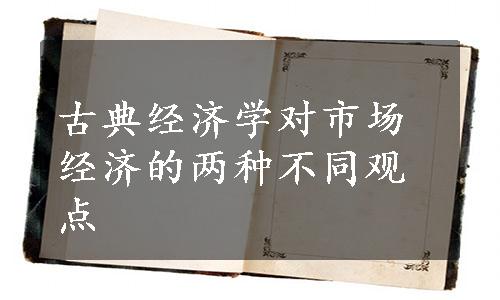 古典经济学对市场
经济的两种不同观
点